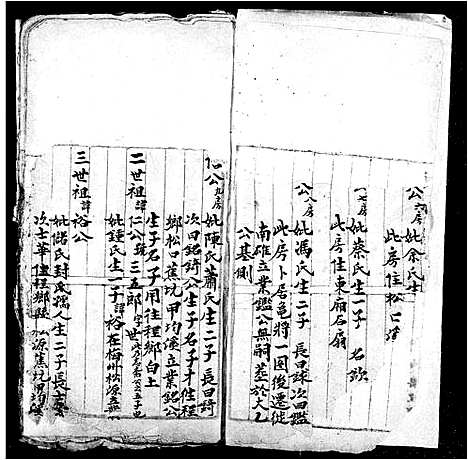 公六房 妣余氏生
此房住松口
一七房 妣蔡氏生一子 名欽
此房住東廂石扇
公八房 妣馮氏生二子 長曰銶次曰鑑
此房卜居龜將一圖後遷徙
南雄立業鑑公無嗣塟於大乙
公墓側
公九房 妣陳氏蕭氏生二子 長曰錡
次曰銘錡公生子名子才住程
鄉松口蕉坑甲均溪立業銘公
生子名子用住程鄉白土
二世祖諱仁公 三五郎
妣鍾氏生一子諱裕在梅州松源
三世祖諱裕公
妣 氏封孺人生二子長士
次士華住程鄉縣松源蕉坑